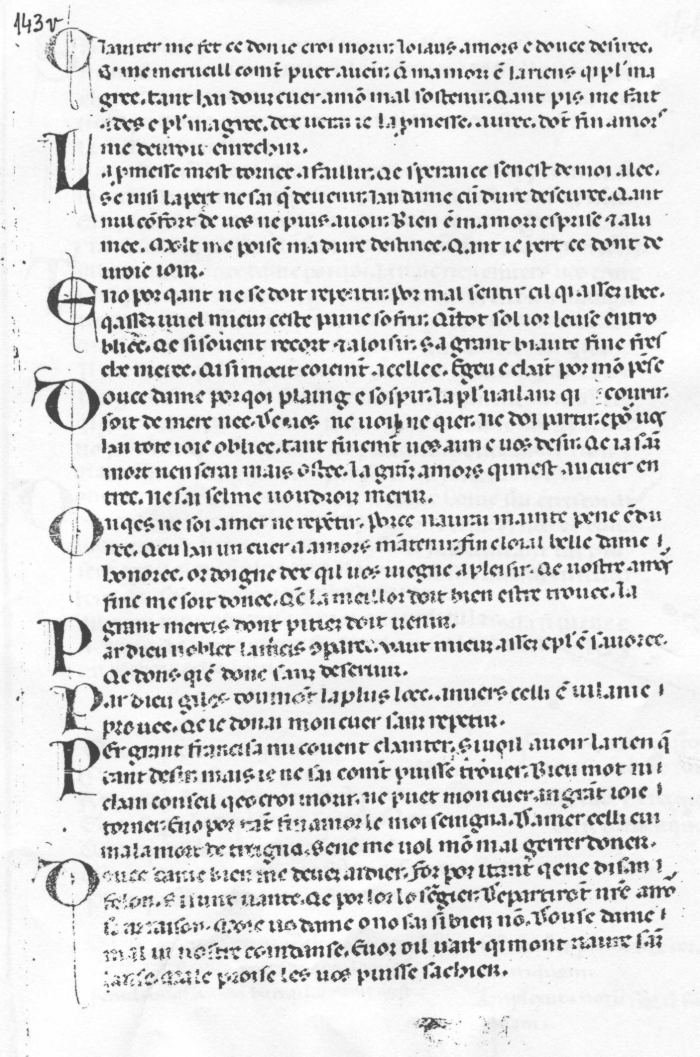 143v
Chanter me fet ce don ie croi morir. loiaus amors e douce desiree.
Si me merueill comt puet aueir. q̃ ma mort ẽ la riens qi pl' ma
gree. tant lan dout cuer amõ mal sostenir. Qant pis me fait
ades e pl' magree. dex uerrai ie la pmesse. auree. dõt fin amor
me deuroit enrechir.
La pmesse mest tornee a faillir. Qe sperance senest de moi alee.
se uisi la pert ne sai q̃ deuenir. lan dame cũ dure deseuree. Qant
nul cõfort de uos ne puis auoir. Bien ẽ ma mort esprise & alu
mee. Molt me poise ma dure destinee. Qant ie pert ce dont de
uroie ioir.
Eno por qant ne se doit repentir. por mal sentir cil qi asser bee.
qasser uuel mieux ceste paine sofrir. Qtot sol ior leuse entro
bliee. Qe si souent recort & a loisir. sa grant biaute fine fres
che meree. Qi si moeit coiemt acellee. Egeu e clait por mõ pẽse
Douce dame por qoi plaing e sospir. la pl' uaillant qi courir.
soit de mere nee. De uos ne uoil ne qer. ne doi partir. epo uos
lan tote ioie obliee. tant finemt uos aim e uos desir. Qe ia sanz
mort nen serai mais ostee. la grant amors qi mest au cuer en
tree. ne sai sel me uoudroit merir.
Ouqes ne soi amer ne repẽtir. porce naurai mainte peine ẽdu
ree. Qeu lan un cuer a amors mãtenir. fin e loial belle dame i
honoree. or doigne dex qil uos uiegne a pleisir. Qe uostre amor
fine me soit donee. Qẽ la meillor doit bien estre trouee. la
grant mercis dont pitiez doit uenir.
Par dieu noblet la mercis cõparee. uaut mieux asser e pl' ẽ sauoree.
Qe dons qiẽ done sanz deseruir.
Par dieu giles tou mõt la plus loee. anuers celli ẽ uilanie i
prouee. Qe ie donai mon cuer sanz repetir.
Per grant franchisa mi couent chanter. si uoil auoir la rien q̃
tant desir. mais ie ne sai comt puisse trouer. Bieu mot ni
clain conseil qeo croi morir. ne puet mon cuer. an grãt ioie i
torner. Eno por tãt fin amor le moi seuigna. Damer celli ein
mala mort detreigna. sene me uol mõ mal gerrer doner.
Douce dame bien me deuez aidier. for por itant qe ne disan i
felon. si nunt uante. Qe por lor losẽgier. Departirõt nr̃e amo
sanz raison. Uoie uo dame o no sai si bien nõ. Vouse dame i
mal in uostre comdanse. Euor oil uair qi mont naure sanz
lanse male proise les uos puisse sachier.